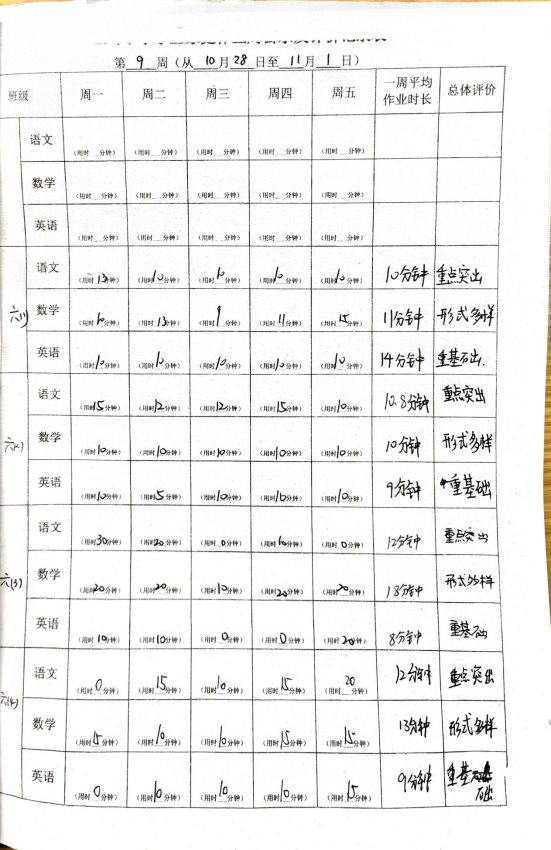 第 9 周（从 10 月 28 日至 11 月 1 日）
班级 周一 周二 周三 周四 周五 一周平均作业时长 总体评价
语文 （用时__分钟） （用时__分钟） （用时__分钟） （用时__分钟） （用时__分钟）
数学 （用时__分钟） （用时__分钟） （用时__分钟） （用时__分钟） （用时__分钟）
英语 （用时__分钟） （用时__分钟） （用时__分钟） （用时__分钟） （用时__分钟）
六(1) 语文 （用时13分钟） （用时10分钟） （用时10分钟） （用时10分钟） （用时10分钟） 10分钟 重点突出
数学 （用时10分钟） （用时13分钟） （用时9分钟） （用时11分钟） （用时15分钟） 11分钟 形式多样
英语 （用时10分钟） （用时10分钟） （用时10分钟） （用时10分钟） （用时10分钟） 14分钟 重基础.
语文 （用时15分钟） （用时12分钟） （用时12分钟） （用时15分钟） （用时10分钟） 12.8分钟 重点突出
数学 （用时10分钟） （用时10分钟） （用时10分钟） （用时10分钟） （用时10分钟） 10分钟 形式多样
英语 （用时10分钟） （用时5分钟） （用时10分钟） （用时10分钟） （用时10分钟） 9分钟 重基础
六(3) 语文 （用时30分钟） （用时20分钟） （用时0分钟） （用时10分钟） （用时0分钟） 12分钟 重点突出
数学 （用时20分钟） （用时20分钟） （用时10分钟） （用时20分钟） （用时20分钟） 18分钟 形式多样
英语 （用时10分钟） （用时10分钟） （用时0分钟） （用时0分钟） （用时20分钟） 8分钟 重基础
六(4) 语文 （用时0分钟） （用时15分钟） （用时10分钟） （用时15分钟） （用时20分钟） 12分钟 重点突出
数学 （用时15分钟） （用时10分钟） （用时10分钟） （用时15分钟） （用时15分钟） 13分钟 形式多样
英语 （用时0分钟） （用时10分钟） （用时10分钟） （用时10分钟） （用时15分钟） 9分钟 重基础